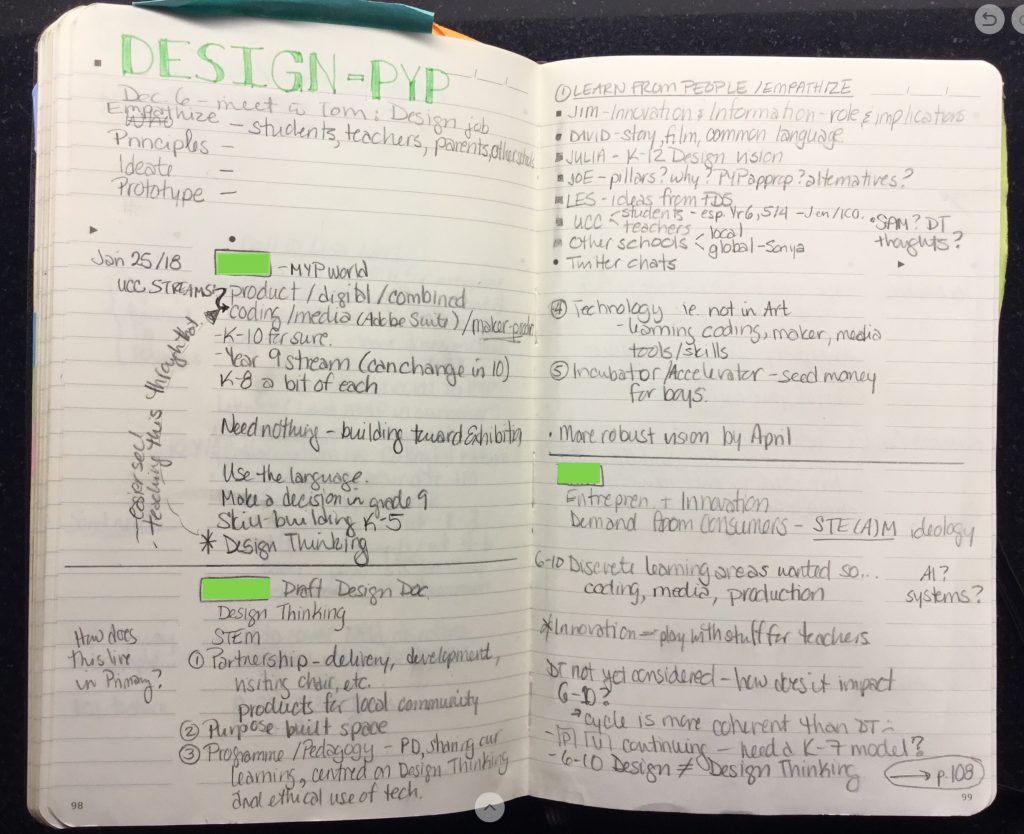 DESIGN-PYP
Dec 6 - meet a Tom: Design job
Empathize - students, teachers, parents, other schools
Principles -
Ideate -
Prototype -
Jan 25/18
- MYP world
UCC STREAMS?
product / digitl / combined
coding / media (Adobe Suite) / maker-
- K-10 for sure.
- Year 9 stream (can change in 10)
K-8 a bit of each
Need nothing - building toward Exhibition
Use the language.
Make a decision in grade 9
Skill-building K-5
* Design Thinking
- teaching this throughout
Draft Design Doc
Design Thinking
STEM
How does
this live
in Primary?
① Partnership - delivery, development,
visiting chair, etc.
products for local community
② Purpose built space
③ Programme / Pedagogy - PD, sharing our
learning, centred on Design Thinking
and ethical use of tech.
98
① LEARN FROM PEOPLE / EMPATHIZE
▪ JIM - Innovation & Information - role & implications
▪ DAVID - story, film, common language
▪ JULIA - K-12 Design vision
▪ JOE - pillars? why? PYP approp? alternatives?
▪ LES - ideas from TDS
▪ UCC < students - esp. Yr 6, 5/4 - Jen/ICO.
teachers
▪ Other schools < local
global - Sonya
• SAM? DT
thoughts?
• Twitter chats
④ Technology ie. not in Art
- learning coding, maker, media
tools/skills
⑤ Incubator / Accelerator - seed money
for boys.
• More robust vision by April
Entrepren. + Innovation
Demand from Consumers - STE(A)M ideology
6-10 Discrete learning areas wanted so...
coding, media, production
AI?
systems?
* Innovation - play with stuff for teachers
DT not yet considered - how does it impact
6-D?
cycle is more coherent than DT
- |P| |U| continuing - need a K-7 model?
- 6-10 Design ≠ Design Thinking
→ p.108
99